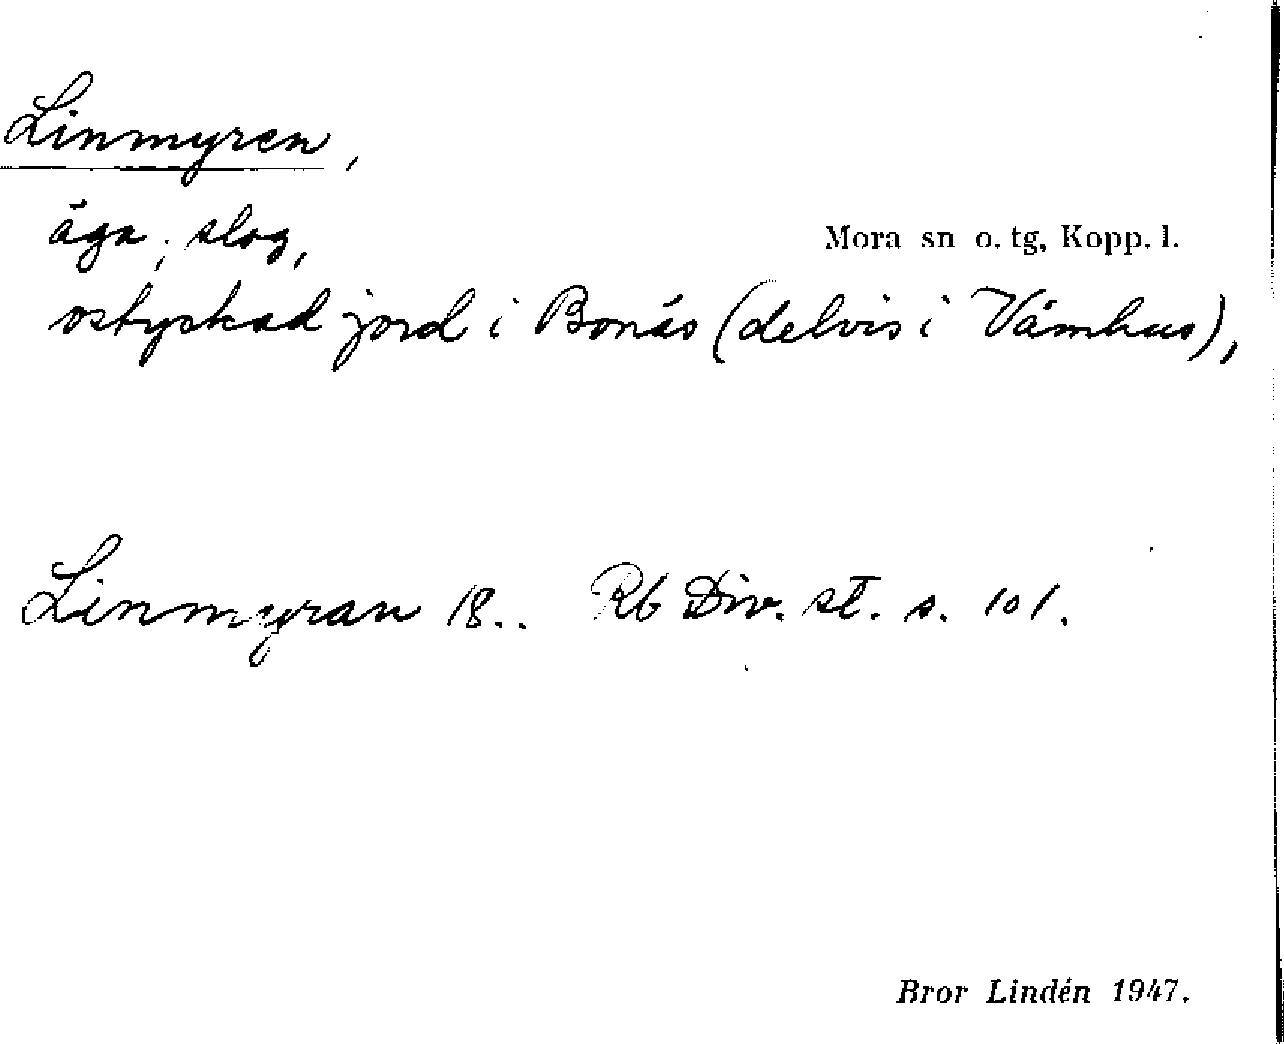 Linmyren,
äga; slog,
Mora sn o. tg, Kopp. l.
ostyckad jord i Bonäs (delvis i Våmhus),
Linmyran 18.. Rb Div. st. s. 101.
Bror Lindén 1947.